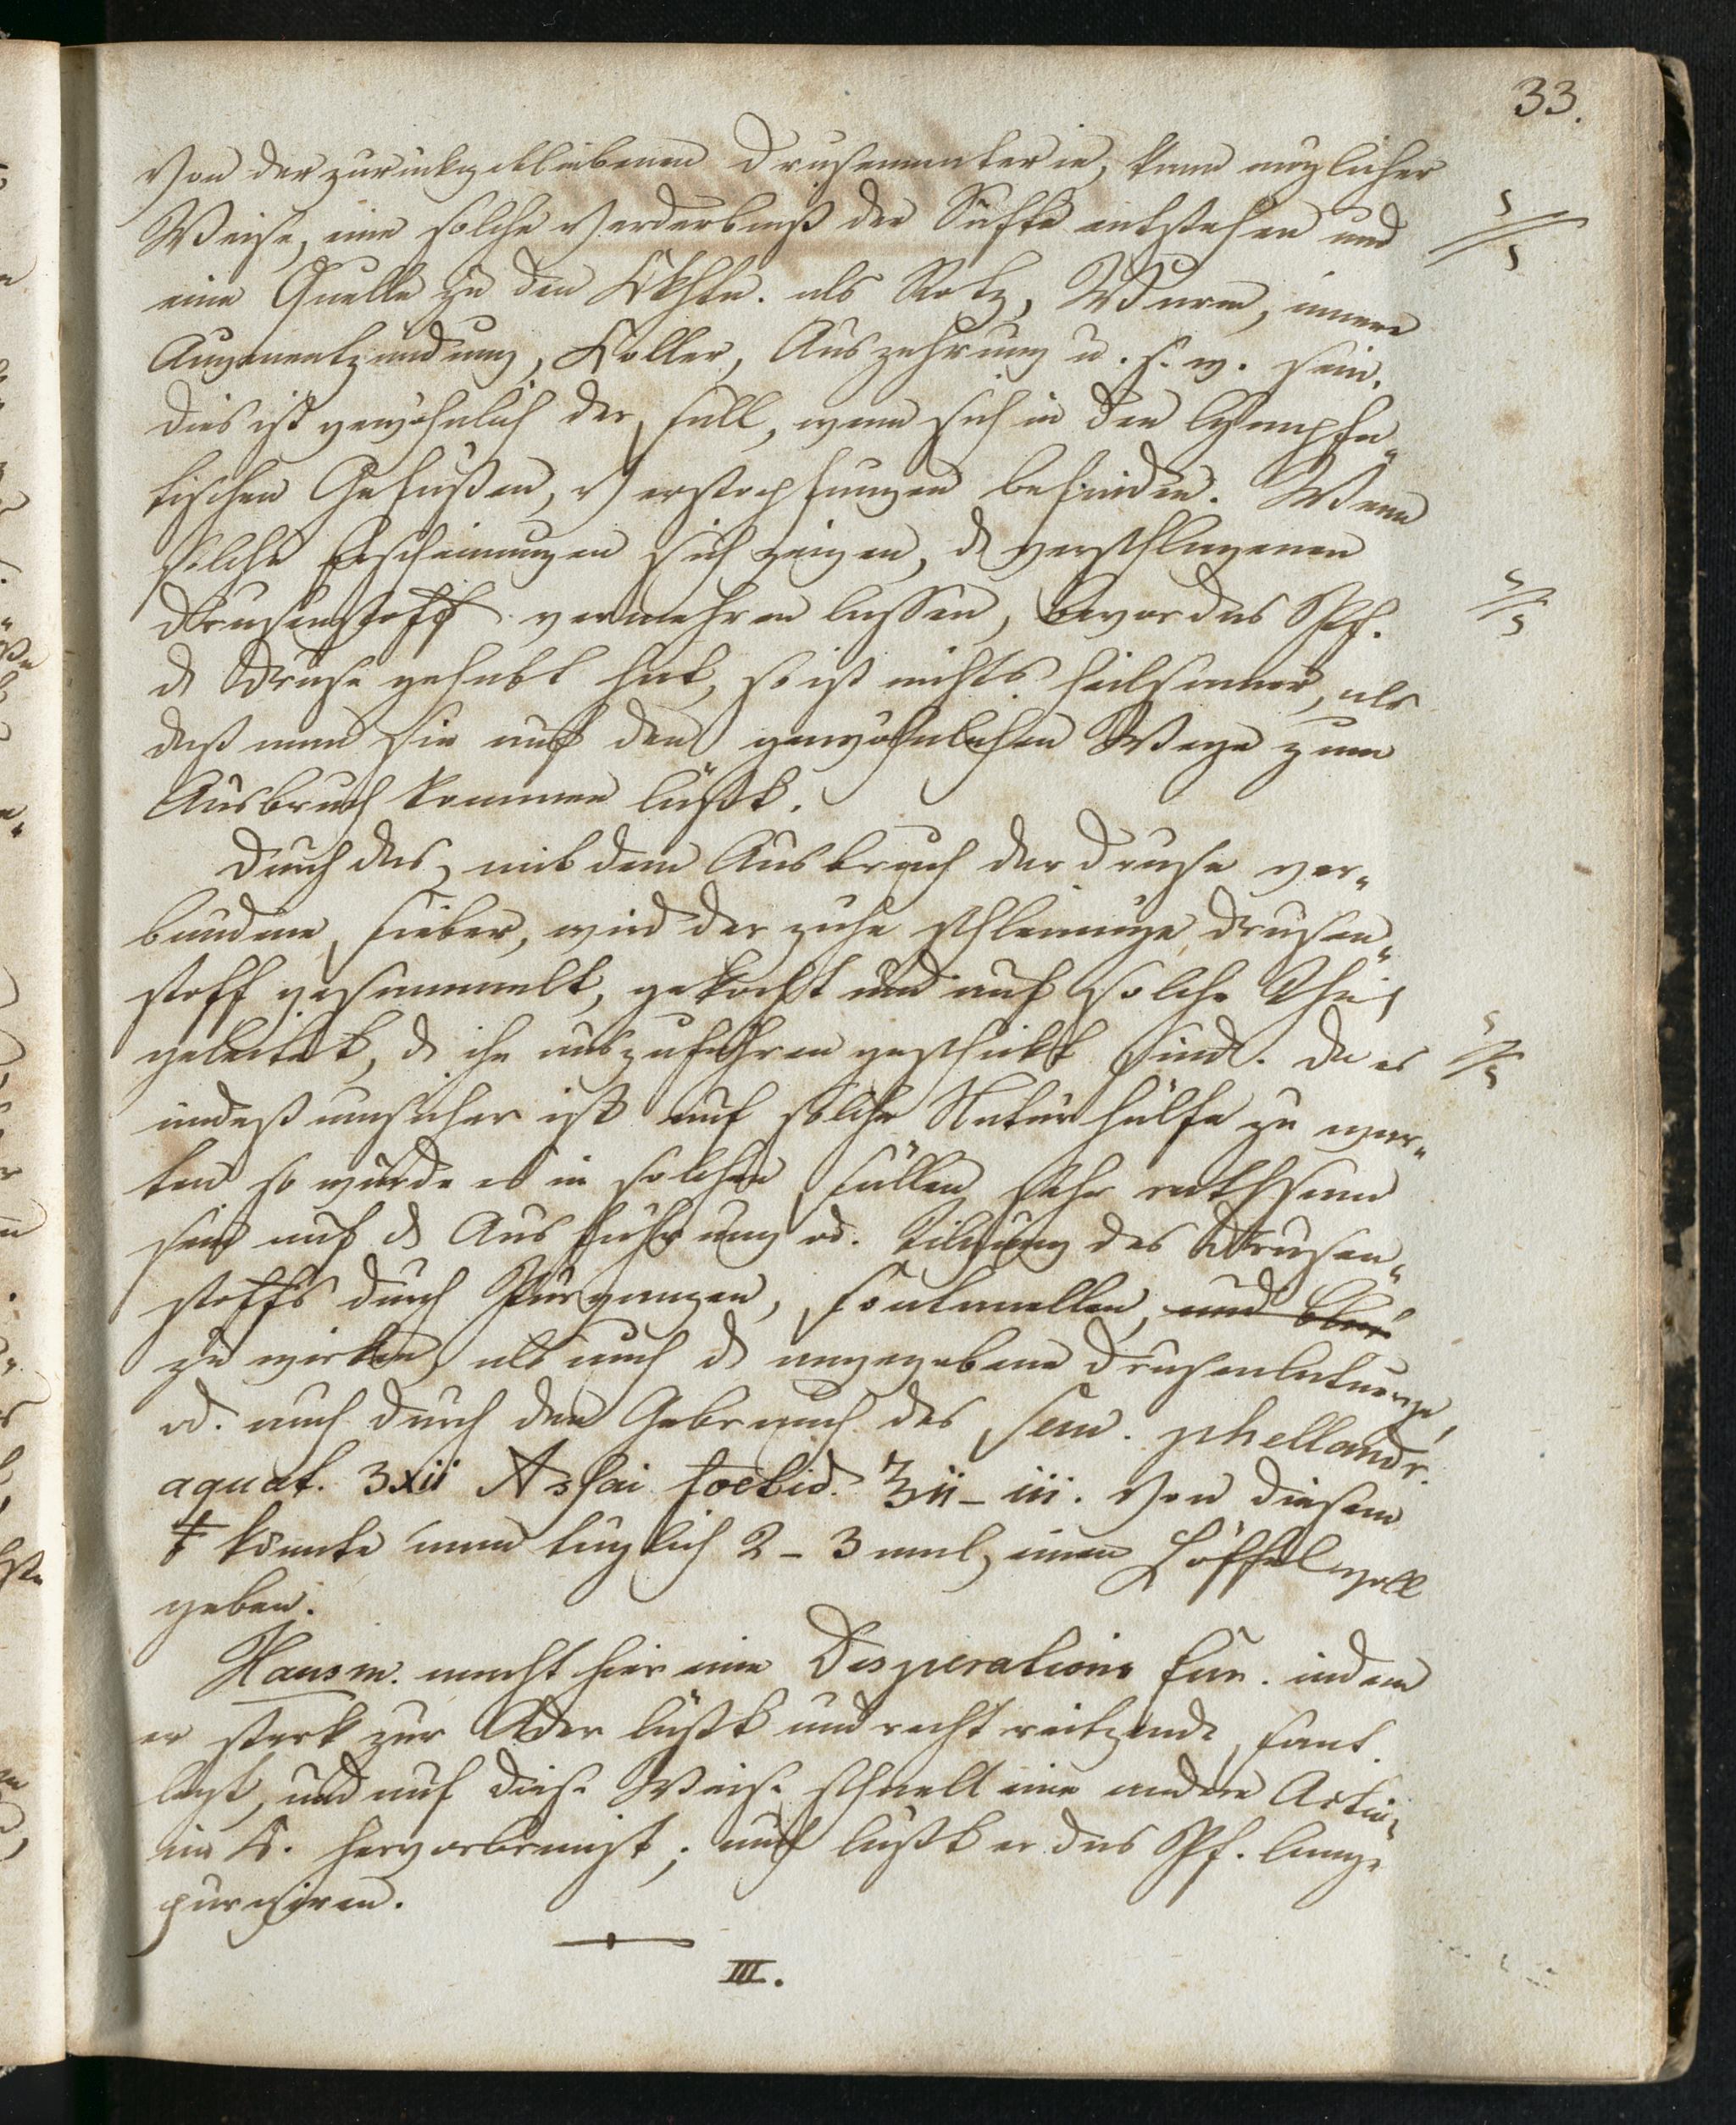 33.
Von der zurückgebliebenen Drusenmaterie, kann möglicher
Weise, eine solche Verderbniß der Säfte entstehen und
eine Quelle zu den Kkhtn. als Rotz, Wurm, innere
Augenentzündung, Koller, Auszehrung u. s. w. sein.
Dies ist gewöhnlich der Fall, wenn sich in den lÿmpha„
tischen Gefäßen, Verstopfungen befinden. Wenn
solche Erscheinungen sich zeigen, d verschlagenen
Drusenstoff vermehren lassen, bevor das Pf.
d Druse gehabt hat, so ist nichts heilsamer, als
daß man sie auf den gewöhnlichen Wege zum
Ausbruch kommen läßt.
Durch das, mit dem Ausbruch der Druse ver„
bundene Fieber, wird der zähe schleimige Drusen„
stoff gesammelt, gekocht und auf solche Theile
geleitet, d ihn auszuführen geschickt sind. Da es
indeß unsicher ist auf solche Naturhülfe zu war„
ten so würde es in solchen Fällen sehr rathsam
sein auf d Ausführung od. tilgung des Drusen„
stoffs durch Purganzen, Fontanellen, und
zu wirken, als auch d angegebene Drusenlatwerge,
od. auch durch den Gebrauch des Sem. phellandr.
aquat. ʒxii Assai foetid. ʒii – iii. Von diesem
könnte man täglich 2 – 3 mal, einen Löffelvoll
geben.
Hausm. macht hier eine Desperations Cur. indem
er stark zur Ader läßt und recht reitzende Font.
legt, und auf diese Weise schnell eine andere Action
im K. hervorbringt; auch läßt er das Pf. lange
purgiren.
III.